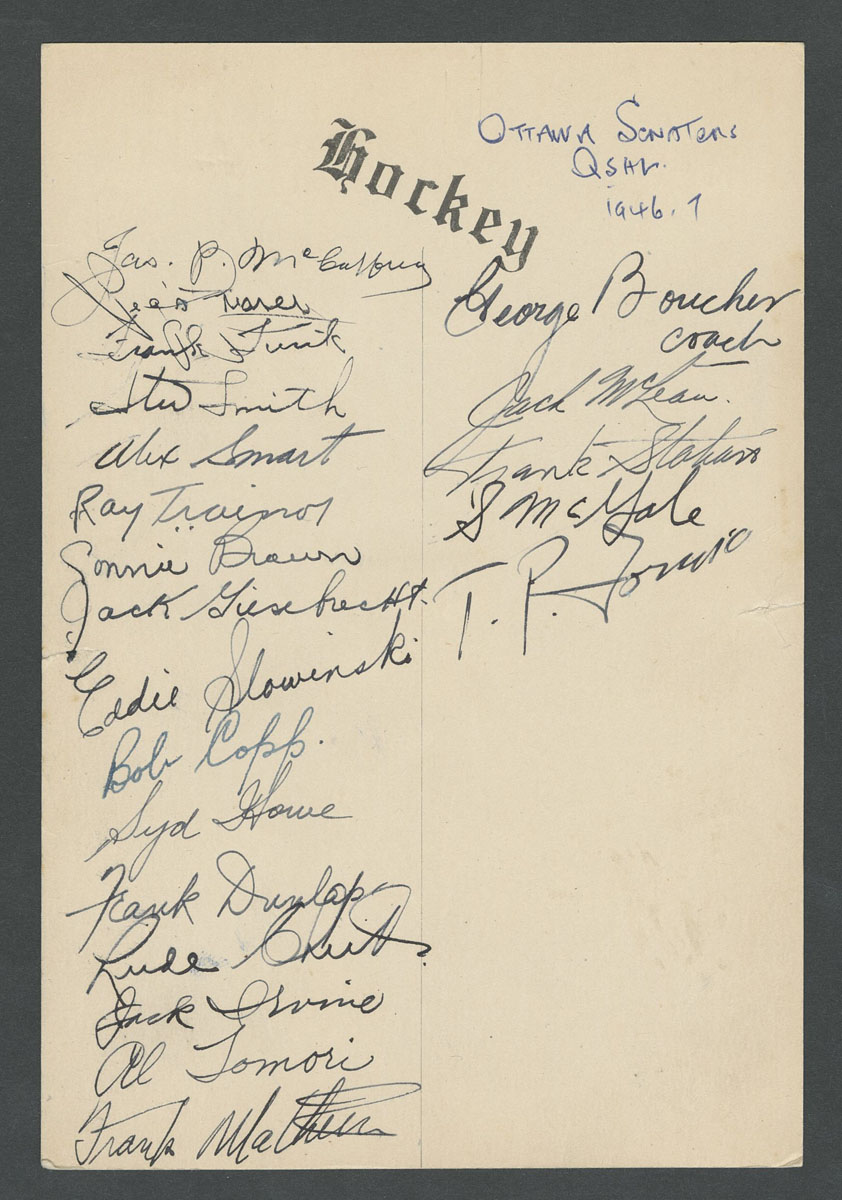 Hockey
OTTAWA SENATORS
QSHL
1946.7
Jas. P. McCaffrey
Frank
Stu Smith
Alex Smart
Ray Trainor
Connie Brown
Jack Giesebrecht.
Eddie Slowinski
Bob Copp.
Syd Howe
Frank Dunlap
Jack Irvine
Al Tomori
Frank Mathers
George Boucher
coach
Jack McLean.
Frank
S McYale
T. P.